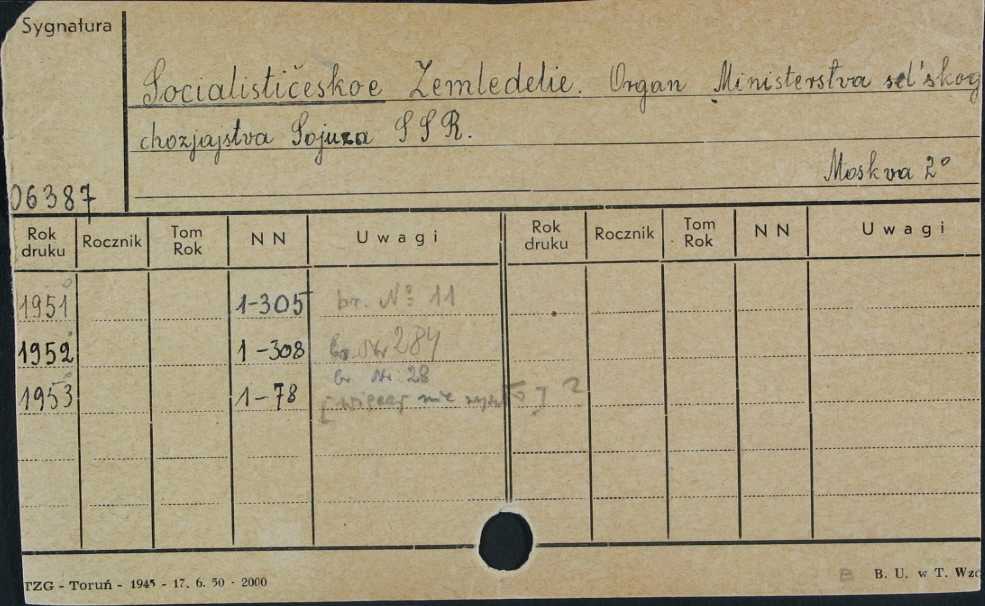 Sygnatura
Socialističeskoe Zemledelie. Organ Ministerstva sel'skog
chozjajstva Sojuza SSR.
Moskva 2°
06387
Rok druku Rocznik Tom Rok NN Uwagi Rok druku Rocznik Tom Rok NN Uwagi
1951 1-305 br. № 11
1952 1-308 br. Nr 284
br. Nr. 28
1953 1-78 [więcej nie wyszło] ?
TZG - Toruń - 1945 - 17. 6. 50 - 2000
B. U. w T. Wzo